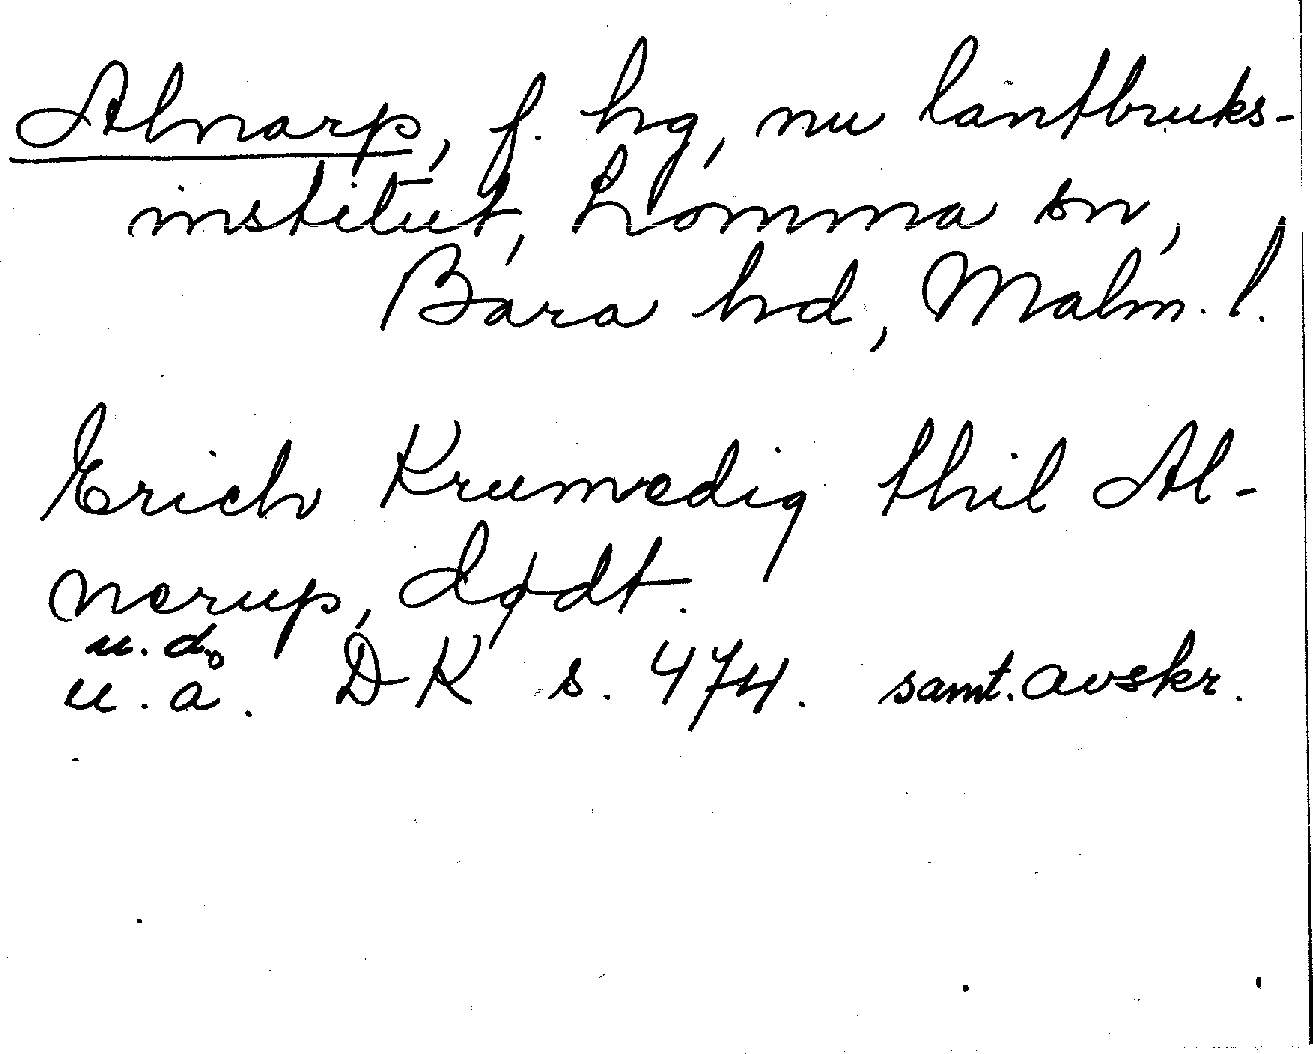 Alnarp, f. hg, nu lantbruks-
institut, Lomma sn,
Bara hd, Malm. l.
Erich Krumedig thil Al-
nerup, dødt.
u. d.
u. a. DK s. 474. samt. avskr.